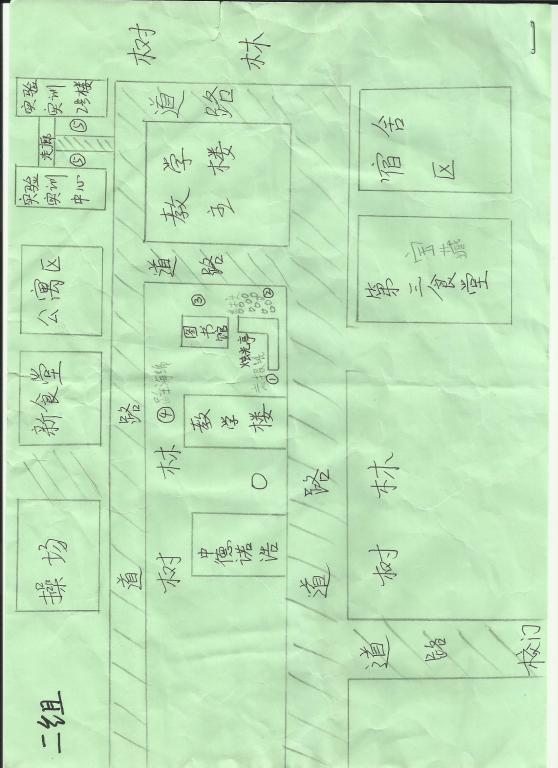 树 林
道 路
实验
实训
2号楼
⑤
走廊
⑤
实验
实训
中心
教学
主楼
宿舍
区
道 路
公寓区
宝藏
第三食堂
③
②
图书馆
烛光亭
①
④
新食堂
路
教学楼
林
树
路
道
道
中德诺浩
操场
树 林
道 路
校门
二组